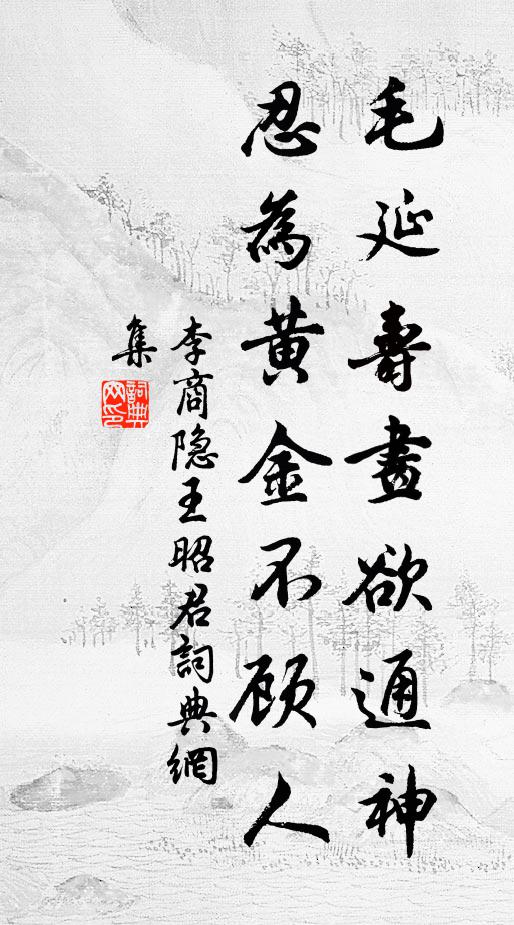 毛延壽畫欲通神
忍為黃金不顾人
李商隐王昭君詞典網
集
詞典网印